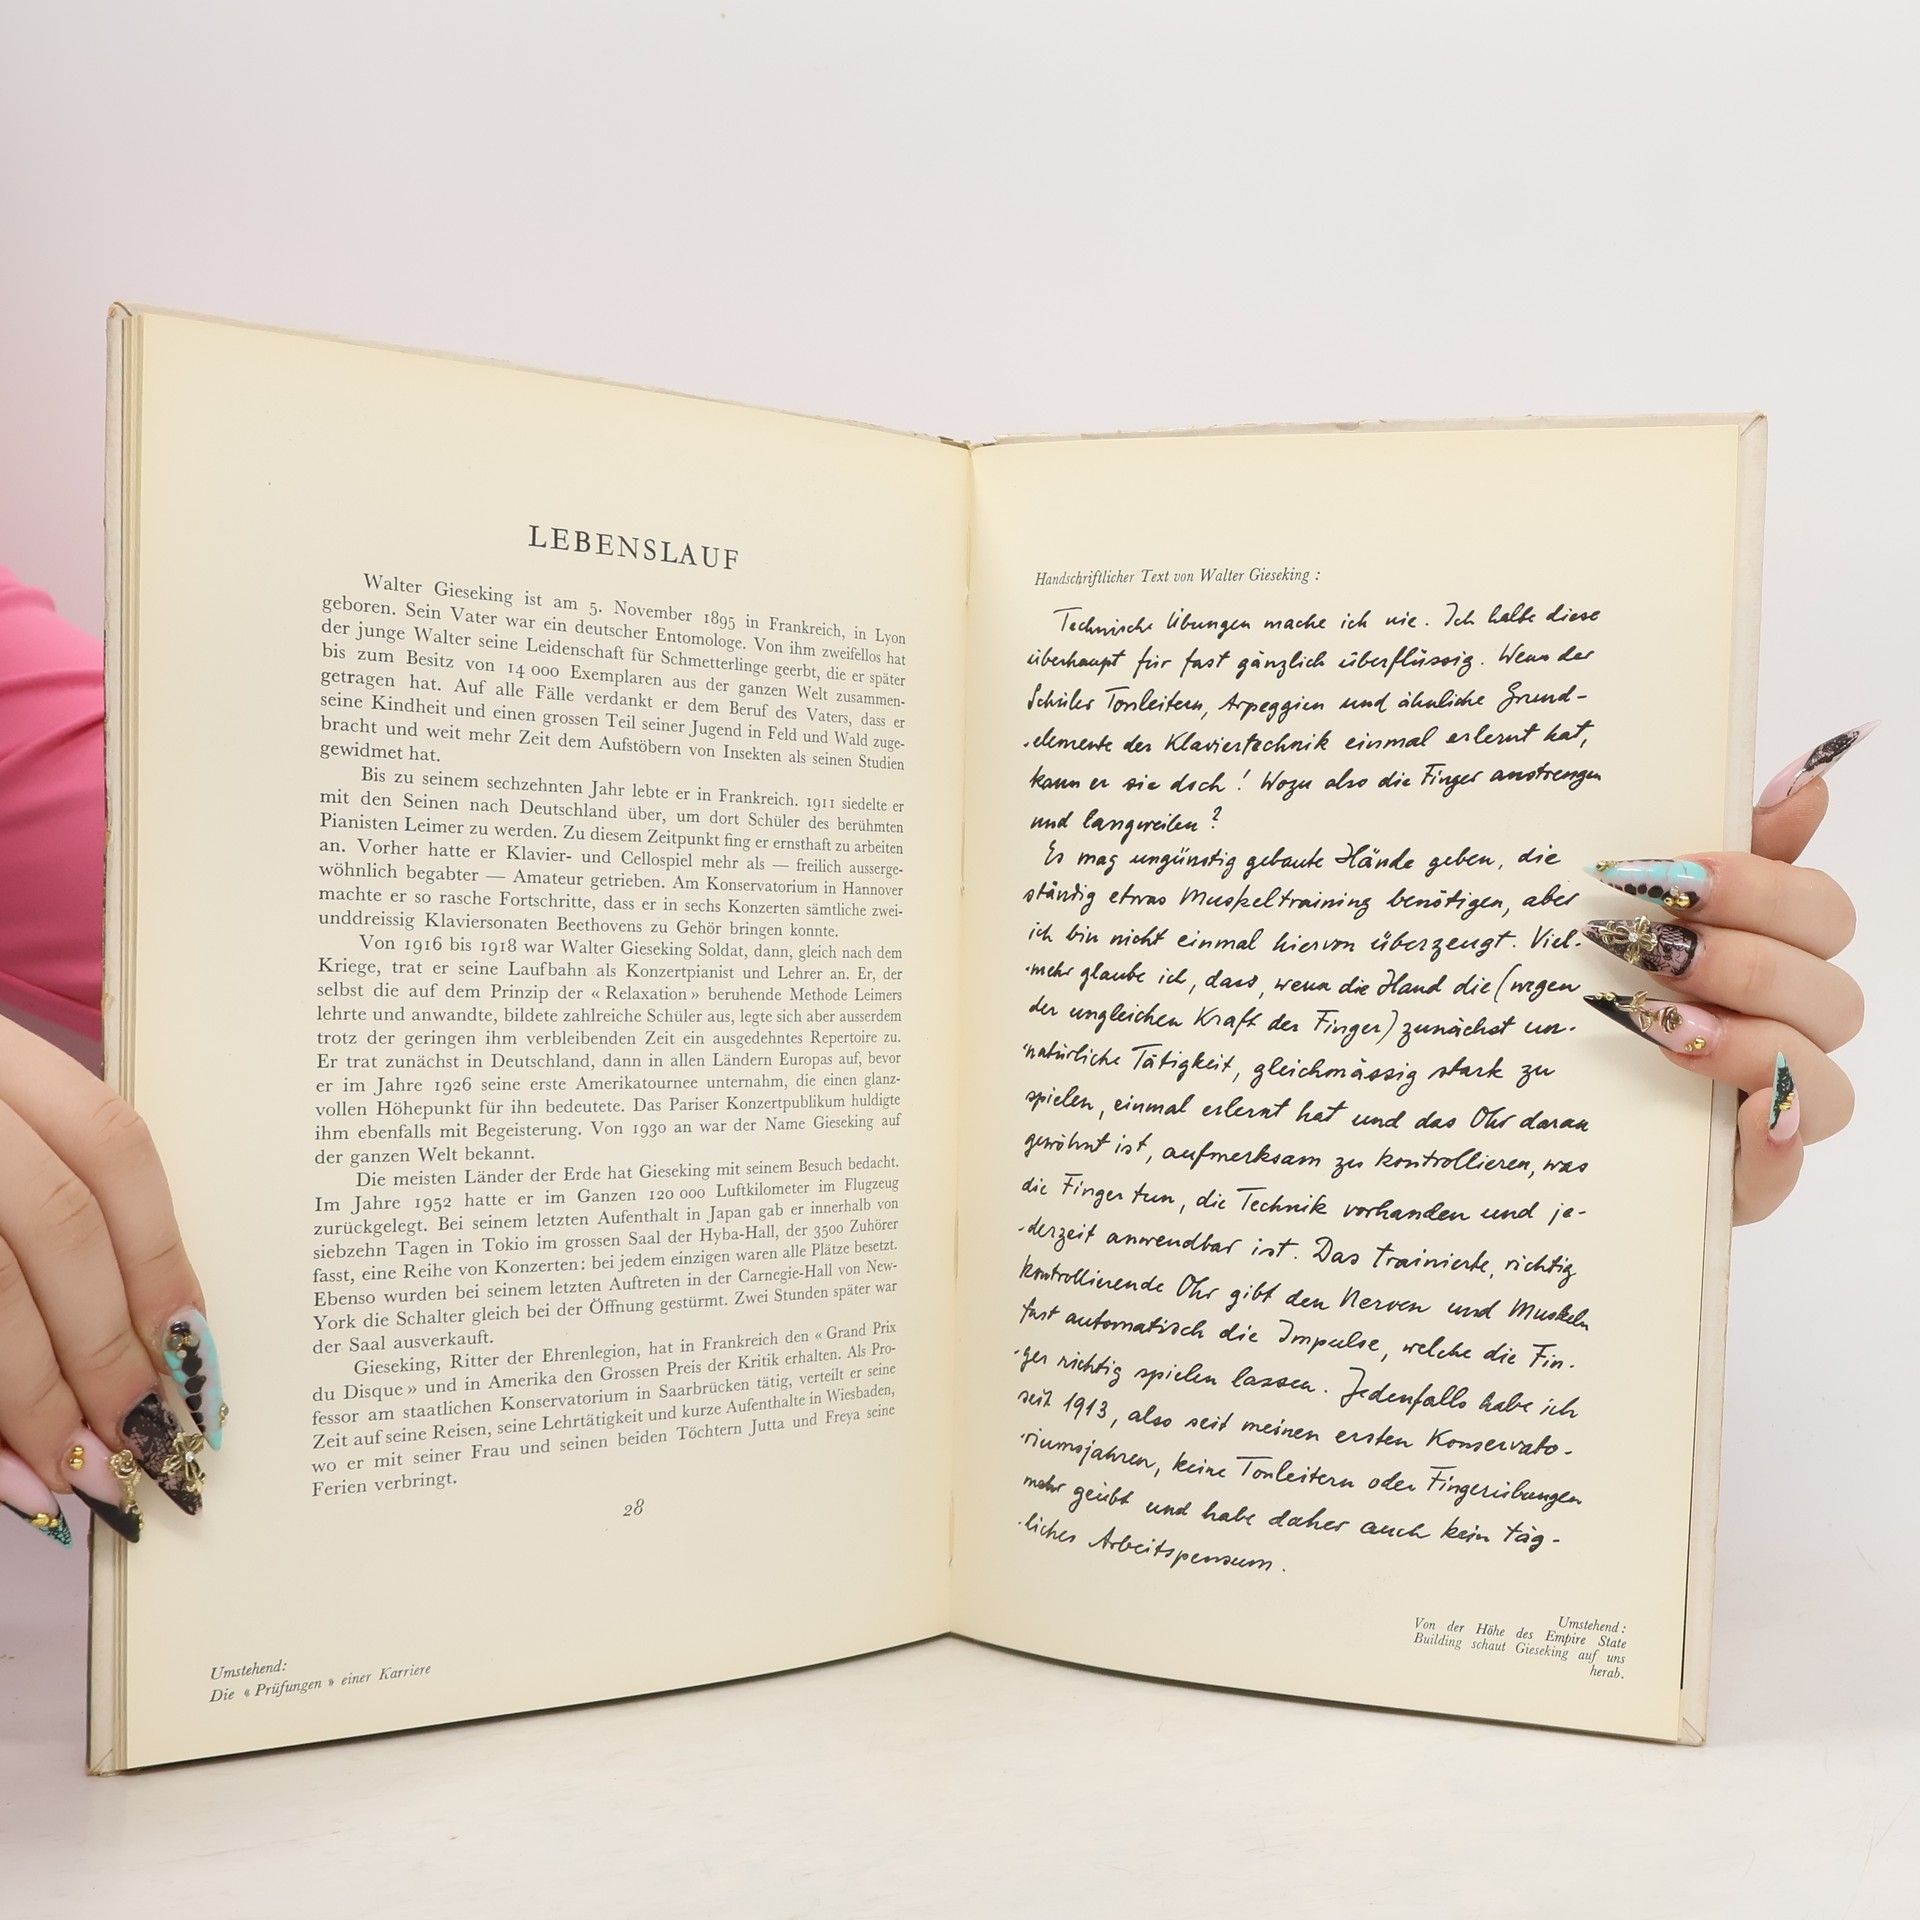 LEBENSLAUF
Walter Gieseking ist am 5. November 1895 in Frankreich, in Lyon
geboren. Sein Vater war ein deutscher Entomologe. Von ihm zweifellos hat
der junge Walter seine Leidenschaft für Schmetterlinge geerbt, die er später
bis zum Besitz von 14 000 Exemplaren aus der ganzen Welt zusammen-
getragen hat. Auf alle Fälle verdankt er dem Beruf des Vaters, dass er
seine Kindheit und einen grossen Teil seiner Jugend in Feld und Wald zuge-
bracht und weit mehr Zeit dem Aufstöbern von Insekten als seinen Studien
gewidmet hat.
Bis zu seinem sechzehnten Jahr lebte er in Frankreich. 1911 siedelte er
mit den Seinen nach Deutschland über, um dort Schüler des berühmten
Pianisten Leimer zu werden. Zu diesem Zeitpunkt fing er ernsthaft zu arbeiten
an. Vorher hatte er Klavier- und Cellospiel mehr als — freilich ausserge-
wöhnlich begabter — Amateur getrieben. Am Konservatorium in Hannover
machte er so rasche Fortschritte, dass er in sechs Konzerten sämtliche zwei-
unddreissig Klaviersonaten Beethovens zu Gehör bringen konnte.
Von 1916 bis 1918 war Walter Gieseking Soldat, dann, gleich nach dem
Kriege, trat er seine Laufbahn als Konzertpianist und Lehrer an. Er, der
selbst die auf dem Prinzip der « Relaxation » beruhende Methode Leimers
lehrte und anwandte, bildete zahlreiche Schüler aus, legte sich aber ausserdem
trotz der geringen ihm verbleibenden Zeit ein ausgedehntes Repertoire zu.
Er trat zunächst in Deutschland, dann in allen Ländern Europas auf, bevor
er im Jahre 1926 seine erste Amerikatournee unternahm, die einen glanz-
vollen Höhepunkt für ihn bedeutete. Das Pariser Konzertpublikum huldigte
ihm ebenfalls mit Begeisterung. Von 1930 an war der Name Gieseking auf
der ganzen Welt bekannt.
Die meisten Länder der Erde hat Gieseking mit seinem Besuch bedacht.
Im Jahre 1952 hatte er im Ganzen 120 000 Luftkilometer im Flugzeug
zurückgelegt. Bei seinem letzten Aufenthalt in Japan gab er innerhalb von
siebzehn Tagen in Tokio im grossen Saal der Hyba-Hall, der 3500 Zuhörer
fasst, eine Reihe von Konzerten: bei jedem einzigen waren alle Plätze besetzt.
Ebenso wurden bei seinem letzten Auftreten in der Carnegie-Hall von New-
York die Schalter gleich bei der Öffnung gestürmt. Zwei Stunden später war
der Saal ausverkauft.
Gieseking, Ritter der Ehrenlegion, hat in Frankreich den « Grand Prix
du Disque » und in Amerika den Grossen Preis der Kritik erhalten. Als Pro-
fessor am staatlichen Konservatorium in Saarbrücken tätig, verteilt er seine
Zeit auf seine Reisen, seine Lehrtätigkeit und kurze Aufenthalte in Wiesbaden,
wo er mit seiner Frau und seinen beiden Töchtern Jutta und Freya seine
Ferien verbringt.
28
Umstehend:
Die « Prüfungen » einer Karriere
Handschriftlicher Text von Walter Gieseking :
Technische Übungen mache ich nie. Ich halte diese
überhaupt für fast gänzlich überflüssig. Wenn der
Schüler Tonleitern, Arpeggien und ähnliche Grund-
-elemente der Klaviertechnik einmal erlernt hat,
kann er sie doch! Wozu also die Finger anstrengen
und langweilen?
Es mag ungünstig gebaute Hände geben, die
ständig etwas Muskeltraining benötigen, aber
ich bin nicht einmal hiervon überzeugt. Viel-
-mehr glaube ich, dass, wenn die Hand die (wegen
der ungleichen Kraft der Finger) zunächst un-
-natürliche Tätigkeit, gleichmässig stark zu
spielen, einmal erlernt hat und das Ohr daran
gewöhnt ist, aufmerksam zu kontrollieren, was
die Finger tun, die Technik vorhanden und je-
-derzeit anwendbar ist. Das trainierte, richtig
kontrollierende Ohr gibt den Nerven und Muskeln
fast automatisch die Impulse, welche die Fin-
-ger richtig spielen lassen. Jedenfalls habe ich
seit 1913, also seit meinen ersten Konservato-
-riumsjahren, keine Tonleitern oder Fingerübungen
mehr geübt und habe daher auch kein täg-
-liches Arbeitspensum.
Umstehend:
Von der Höhe des Empire State
Building schaut Gieseking auf uns
herab.